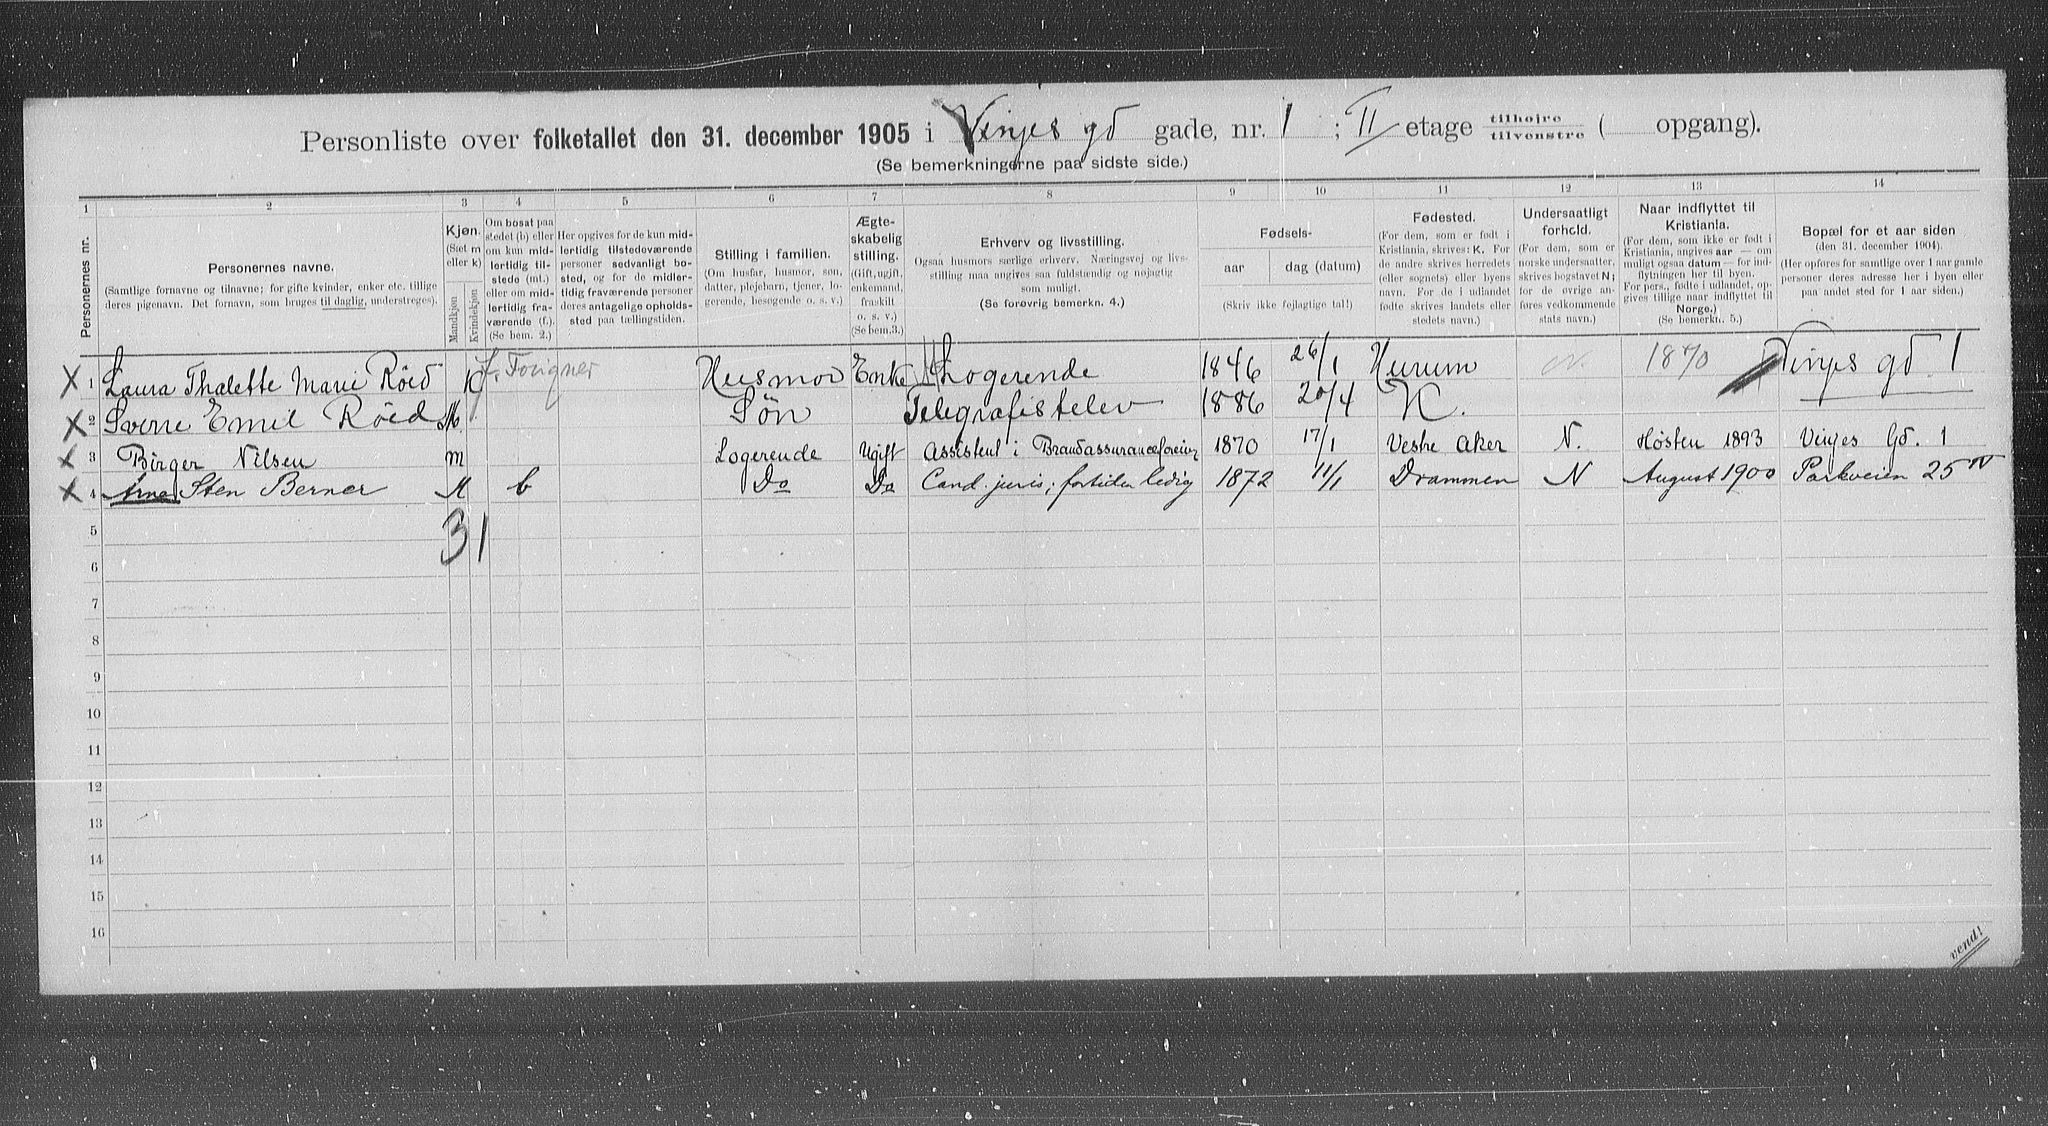 Personliste over folketallet den 31. december 1905 i Vinjes gd gade, nr. 1 ; II etage tilhøire tilvenstre ( opgang).
(Se bemerkningerne paa sidste side.)
1 2 3 4 5 6 7 8 9 10 11 12 13 14
Personernes nr.
Personernes navne.
(Samtlige fornavne og tilnavne; for gifte kvinder, enker etc. tillige deres pigenavn. Det fornavn, som bruges til daglig, understreges).
Kjøn.
(Sæt m eller k)
Mandkjøn
Kvindekjøn
Om bosat paa stedet (b) eller om kun midlertidig tilstede (mt.) eller om midlertidig fraværende (f.).
(Se bem. 2.)
Her opgives for de kun midlertidig tilstedeværende personer sedvanligt bosted, og for de midlertidig fraværende personer deres antagelige opholdssted paa tællingstiden.
Stilling i familien.
(Om husfar, husmor, søn, datter, plejebarn, tjener, logerende, besøgende o. s. v.)
Ægteskabelig stilling.
(Gift, ugift, enkemand, fraskilt o. s. v.)
(Se bem. 3.)
Erhverv og livsstilling.
Ogsaa husmors særlige erhverv. Næringsvej og livsstilling maa angives saa fuldstændig og nøjagtig som muligt.
(Se forøvrig bemerkn. 4.)
Fødsels-
aar
dag (datum)
(Skriv ikke fejlagtige tal!)
Fødested.
(For dem, som er født i Kristiania, skrives: K. For de andre skrives herredets (eller sognets) eller byens navn. For de i udlandet fødte skrives landets eller stedets navn.)
Undersaatligt forhold.
(For dem, som er norske undersaatter, skrives bogstavet N; for de øvrige anføres vedkommende stats navn.)
Naar indflyttet til Kristiania.
(For dem, som ikke er født i Kristiania, angives aar — om muligt ogsaa datum — for indflytningen her til byen. For pers., fødte i udlandet, opgives tillige naar indflyttet til Norge.)
(Se bemerkn. 5.)
Bopæl for et aar siden
(den 31. december 1904).
(Her opføres for samtlige over 1 aar gamle personer deres adresse her i byen eller paa andet sted for 1 aar siden.)
X 1 Laura Thalette Marie Röed K Husmor Enke Logerende 1846 26/1 Hurum N. 1870 Vinjes gd. 1
X 2 Sverre Emil Röed M. Søn Telegrafistelev 1886 20/4 K.
X 3 Birger Nilsen m Logerende Ugift Assistent i Brandassuranceforening 1870 17/1 Vestre Aker N. Høsten 1893 Vinjes Gd. 1
X 4 Arne Sten Berner M b Do Do Cand. juris; fortiden ledig 1872 11/1 Drammen N August 1900 Parkveien 25 IV
3 1
5
6
7
8
9
10
11
12
13
14
15
16
vend!